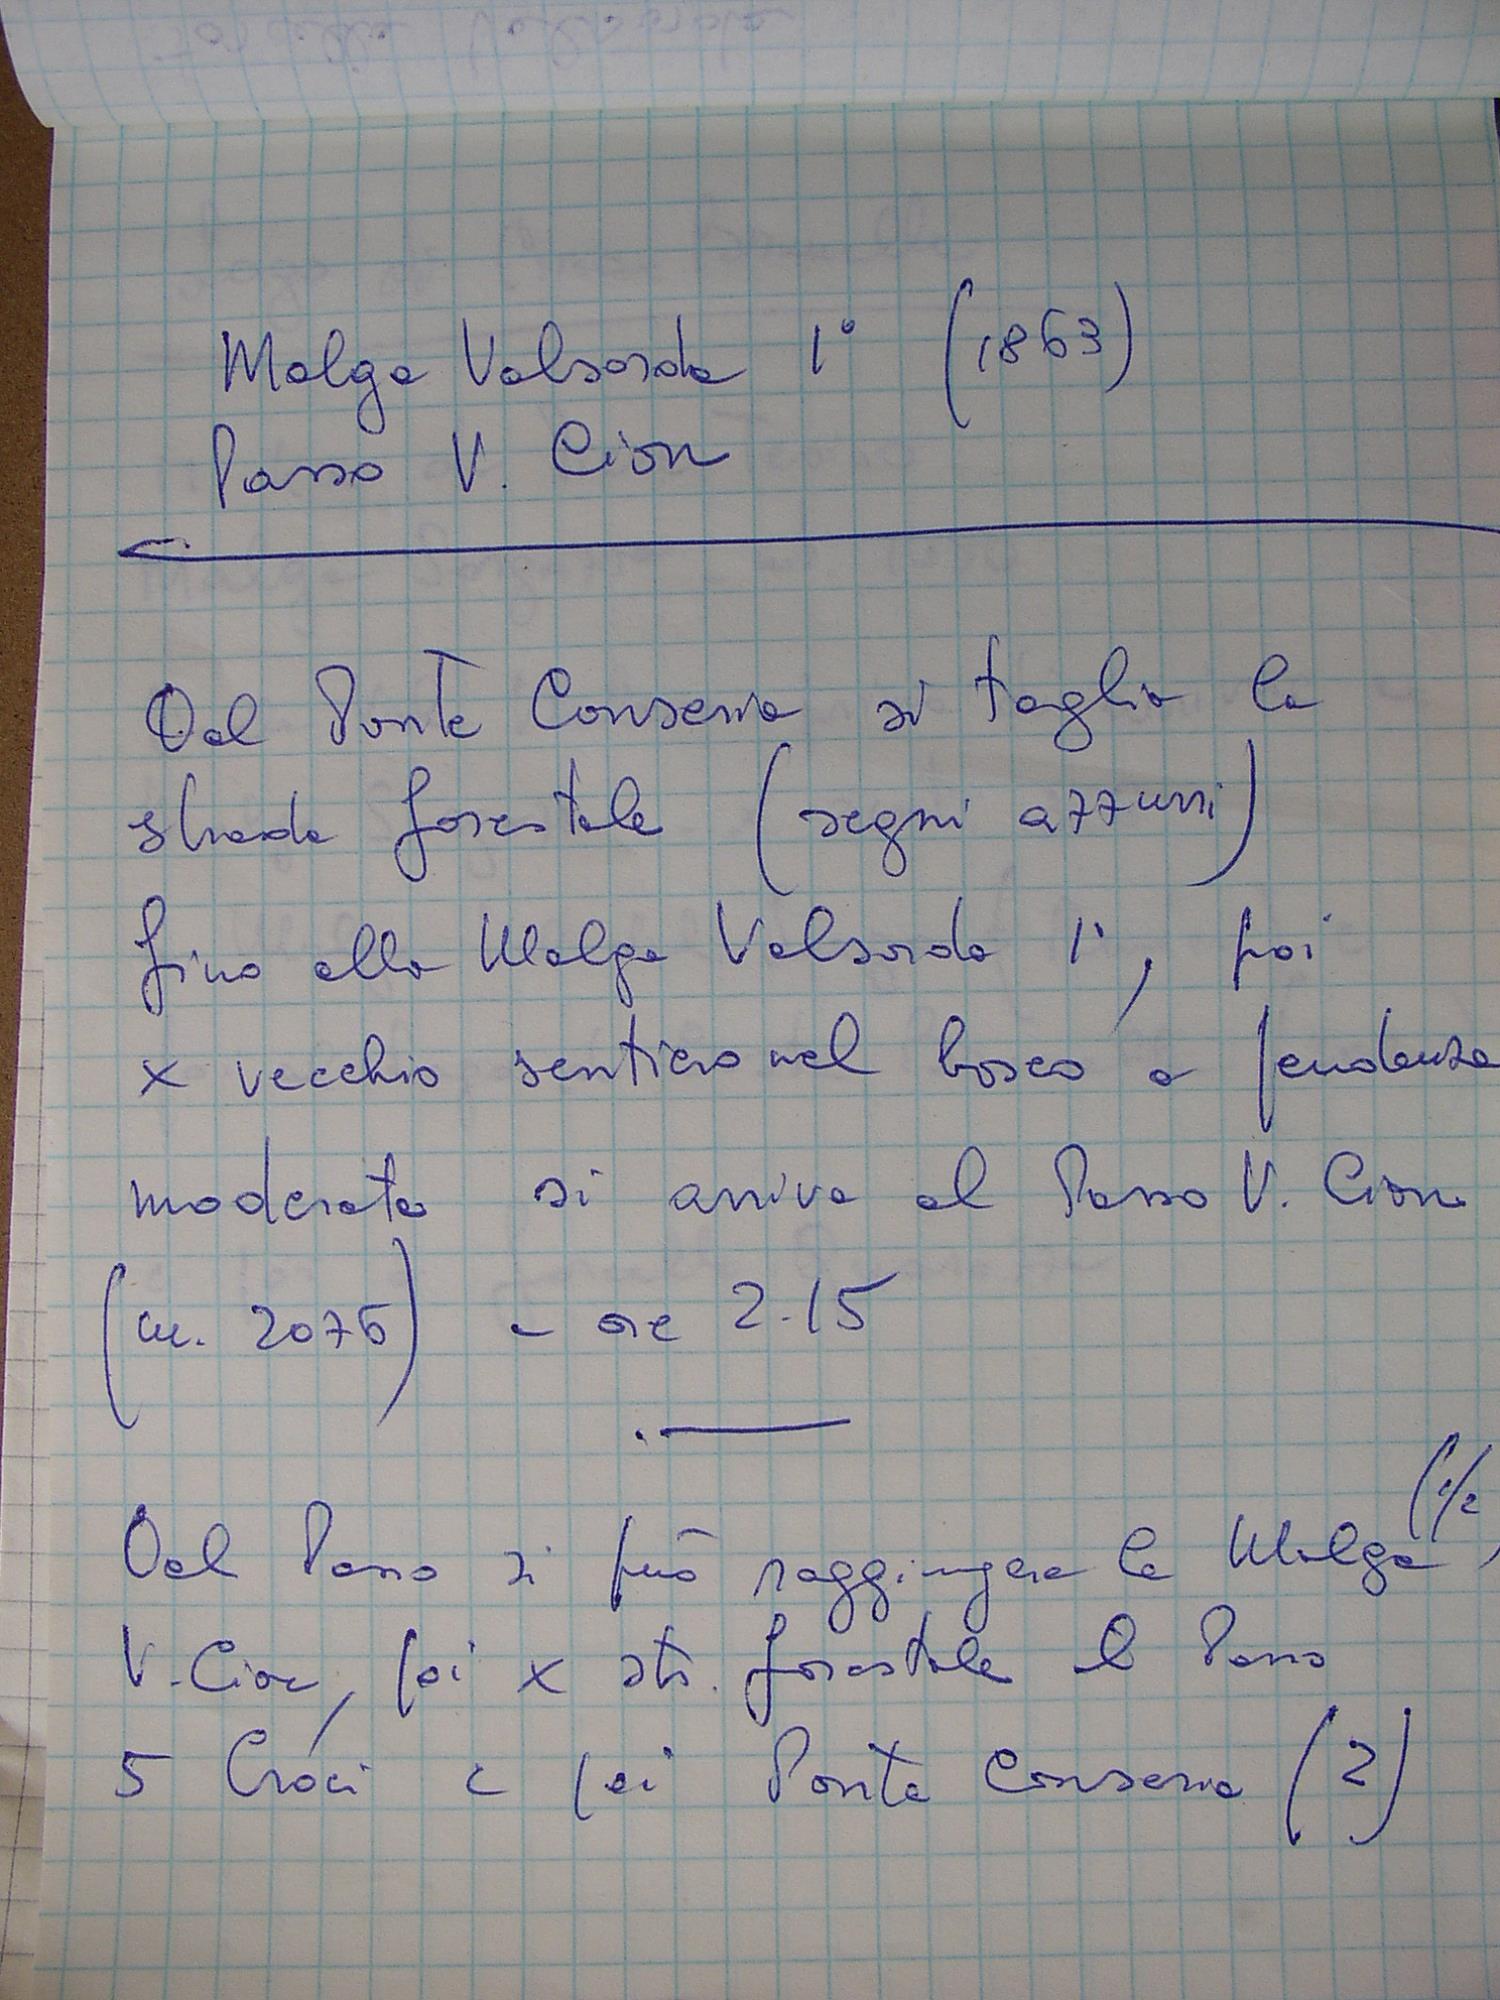 Malga Valsorda 1° (1863)
Passo V. Cion
Dal Ponte Conseria si taglia la
strada forestale (segni azzurri)
fino alla Malga Valsorda 1°, poi
x vecchio sentiero nel bosco a pendenza
moderata si arriva al Passo V. Cion
(m. 2076) - ore 2.15
Dal Passo si può raggiungere la Malga (1/2)
V. Cion, poi x str. forestale il Passo
5 Croci e poi Ponte Conseria (2)